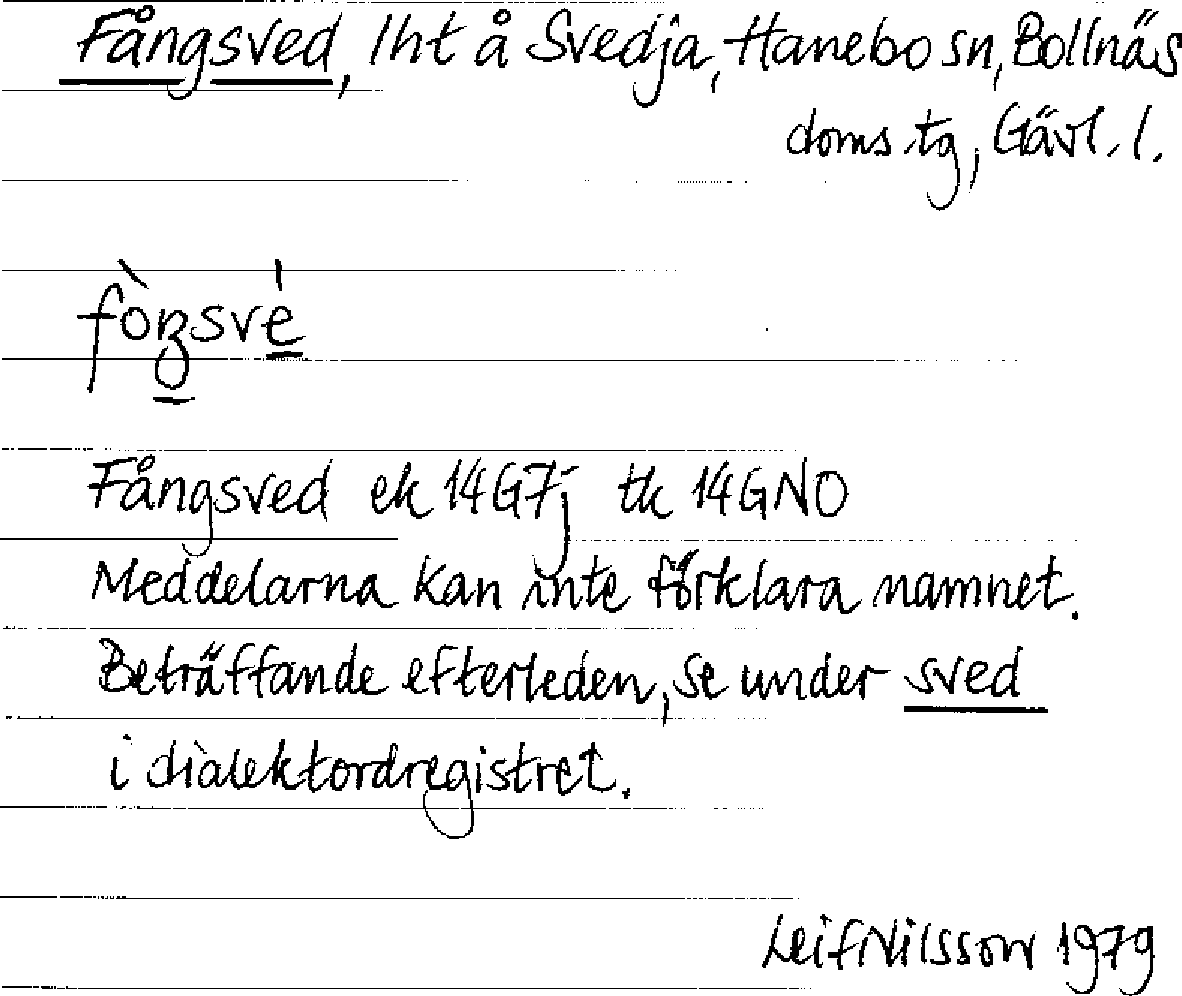 Fångsved, lht å Svedja, Hanebo sn, Bollnäs
doms.tg, Gävl. l.
Fångsved ek 14G7j tk 14GNO
Meddelarna kan inte förklara namnet.
Beträffande efterleden, se under sved
i dialektordregistret.
Leif Nilsson 1979